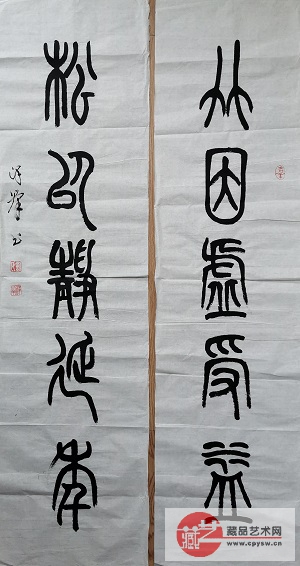 竹因虚受益
松以静延年
藏品艺术网
www.cpysw.cn